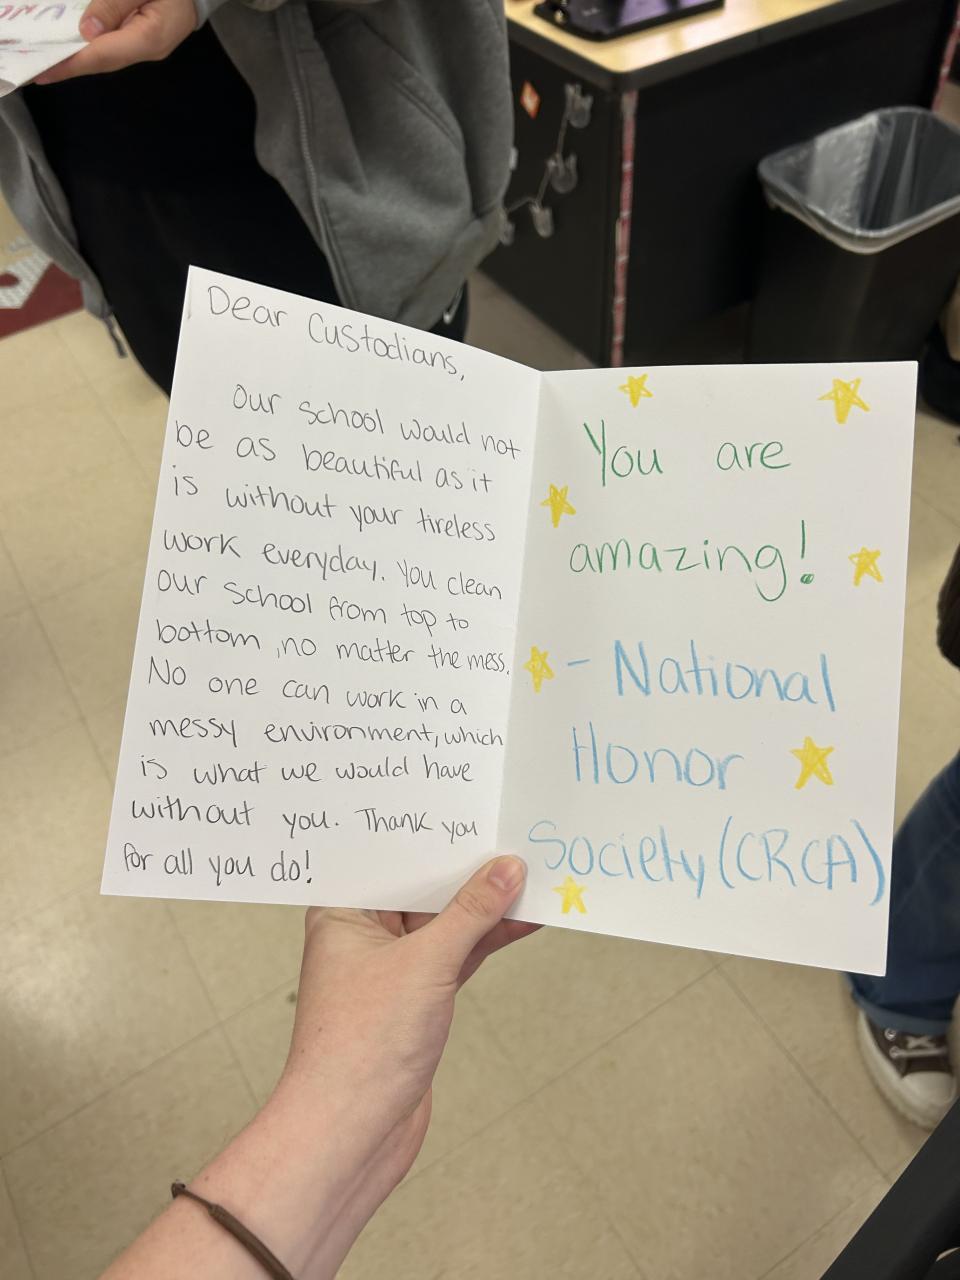 Dear Custodians,
Our school would not
be as beautiful as it
is without your tireless
work everyday. You clean
our school from top to
bottom, no matter the mess.
No one can work in a
messy environment, which
is what we would have
without you. Thank you
for all you do!
You are
amazing!
- National
Honor
Society (CRCA)